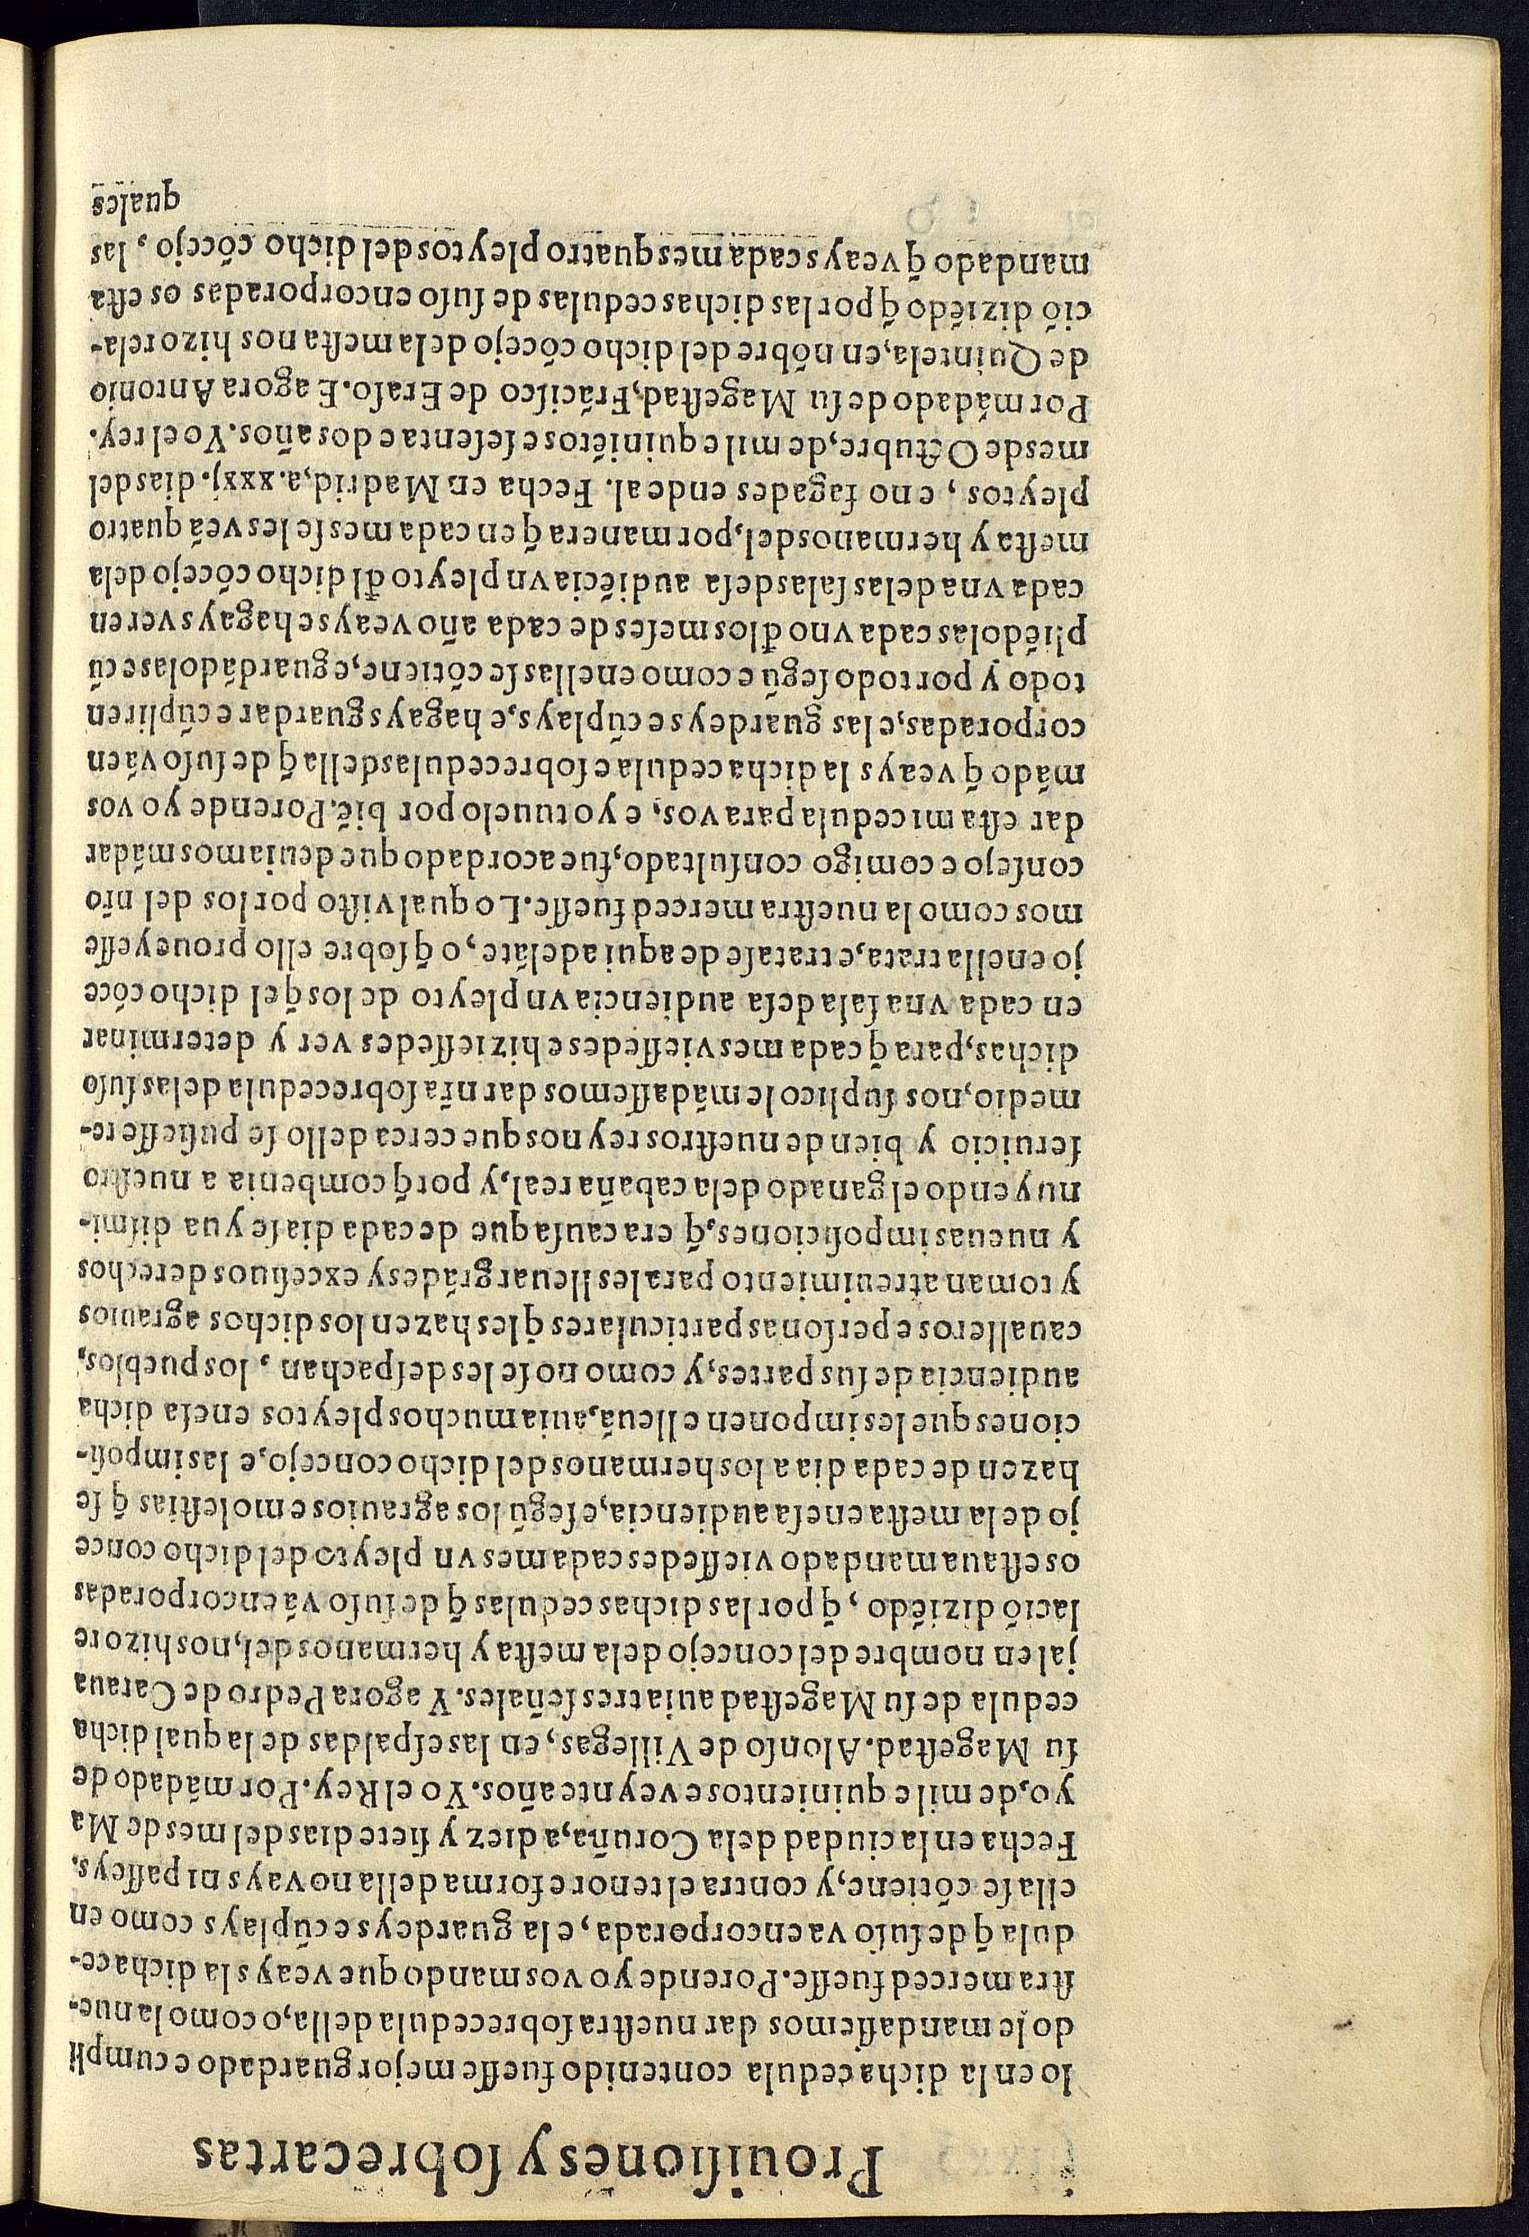 Prouiſiones y ſobrecartas
lo en la dicha cedula contenido fueſſe mejor guardado e cumpli
do le mandaſiemos dar nueſtra ſobrecedula della, o como la nue-
ſtra merced fueſſe. Porende yo vos mando que veays la dicha ce-
dula q̃ de ſuſo va encorporada, e la guardeys e cũplays como en
ella ſe cõtiene, y contra el tenor e forma della no vays ni paſſeys.
Fecha en la ciudad dela Coruña, a diez y ſiete dias del mes de Ma
yo, de mil e quinientos e veynte años. Yo el Rey. Por mãdado de
ſu Mageſtad. Alonſo de Villegas, en las eſpaldas de la qual dicha
cedula de ſu Mageſtad auia tres ſeñales. Y agora Pedro de Caraua
jal en nombre del concejo dela meſta y hermanos del, nos hizo re
lació diziẽdo, q̃ por las dichas cedulas q̃ de ſuſo vã encorporadas
os eſtaua mandado vieſſedes cada mes vn pleyto del dicho conce
jo de la meſta en eſa audiencia, e ſegũ los agrauios e moleſtias q̃ ſe
hazen de cada dia a los hermanos del dicho concejo, e las impoſi-
ciones que les imponen e lleuã, auia muchos pleytos en eſa dicha
audiencia de ſus partes, y como no ſe les deſpachan, los pueblos,
caualleros e perſonas particulares q̃ les hazen los dichos agrauios
y toman atreuimiento para les lleuar grãdes y exceſiuos derechos
y nueuas impoſiciones, q̃ era cauſa que de cada dia ſe yua diſmi-
nuyendo el ganado dela cabaña real, y porq̃ combenia a nueſtro
ſeruicio y bien de nueſtros reynos que cerca dello ſe puſieſſe re-
medio, nos ſuplico le mãdaſſemos dar nr̃a ſobrecedula delas ſuſo
dichas, para q̃ cada mes vieſſedes e hizieſſedes ver y determinar
en cada vna ſala deſa audiencia vn pleyto de los q̃ el dicho cõce
jo en ella trata, e trataſe de aqui adelãte, o q̃ ſobre ello proueyeſſe
mos como la nueſtra merced fueſſe. Lo qual viſto por los del nr̃o
conſejo e comigo conſultado, fue acordado que deuiamos mãdar
dar eſta mi cedula para vos, e yo tuuelo por biẽ. Porende yo vos
mãdo q̃ veays la dicha cedula e ſobrecedulas della q̃ de ſuſo vã en
corporadas, e las guardeys e cũplays, e hagays guardar e cũplir en
todo y por todo ſegũ e como en ellas ſe cõtiene, e guardãdolas e cũ
pliẽdolas cada vno đlos meſes de cada año veays e hagays ver en
cada vna delas ſalas deſa audiẽcia vn pleyto đl dicho cõcejo dela
meſta y hermanos del, por manera q̃ en cada mes ſe les veã quatro
pleytos, e no fagades ende al. Fecha en Madrid, a. xxxj. dias del
mes de Octubre, de mil e quiniẽtos e ſeſenta e dos años. Yo el rey.
Por mãdado de ſu Mageſtad, Frãciſco de Eraſo. E agora Antonio
de Quintela, en nõbre del dicho cõcejo dela meſta nos hizo rela-
ció diziẽdo q̃ por las dichas cedulas de ſuſo encorporadas os eſta
mandado q̃ veays cada mes quatro pleytos del dicho cõcejo, las
quales